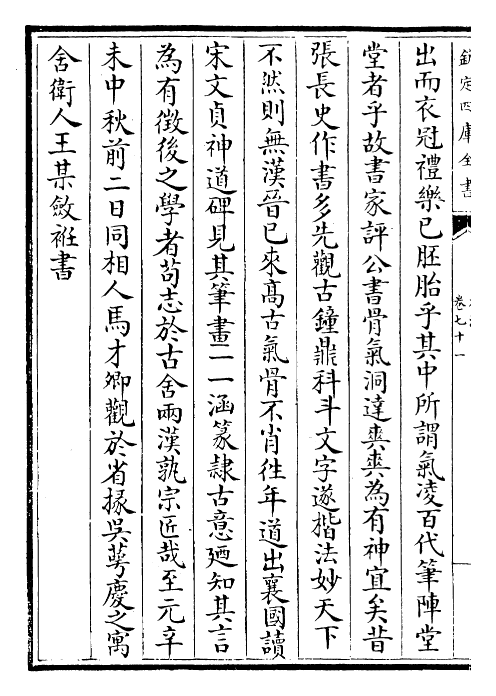 欽定四庫全書
卷七十一
出而衣冠禮樂已胚胎乎其中所謂氣凌百代筆陣堂
堂者乎故書家評公書骨氣洞達爽爽為有神宜矣昔
張長史作書多先觀古鐘鼎科斗文字遂楷法妙天下
不然則無漢晉已來高古氣骨不肖往年道出襄國讀
宋文貞神道碑見其筆畫一一涵篆隸古意廼知其言
為有徵後之學者苟志於古舍兩漢孰宗匠哉至元辛
未中秋前二日同相人馬才卿觀於省掾吳蕚慶之寓
舍衛人王某斂袵書